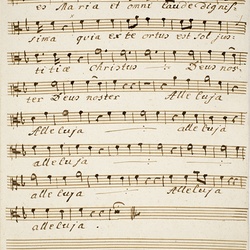 es Maria et omni laude dignis,
sima quia ex te ortus est Sol jus:
titiæ Christus Deus nos,
ter Deus noster Alleluja
Alleluja alleluja
alleluja
alleluja Alleluja
alleluja.